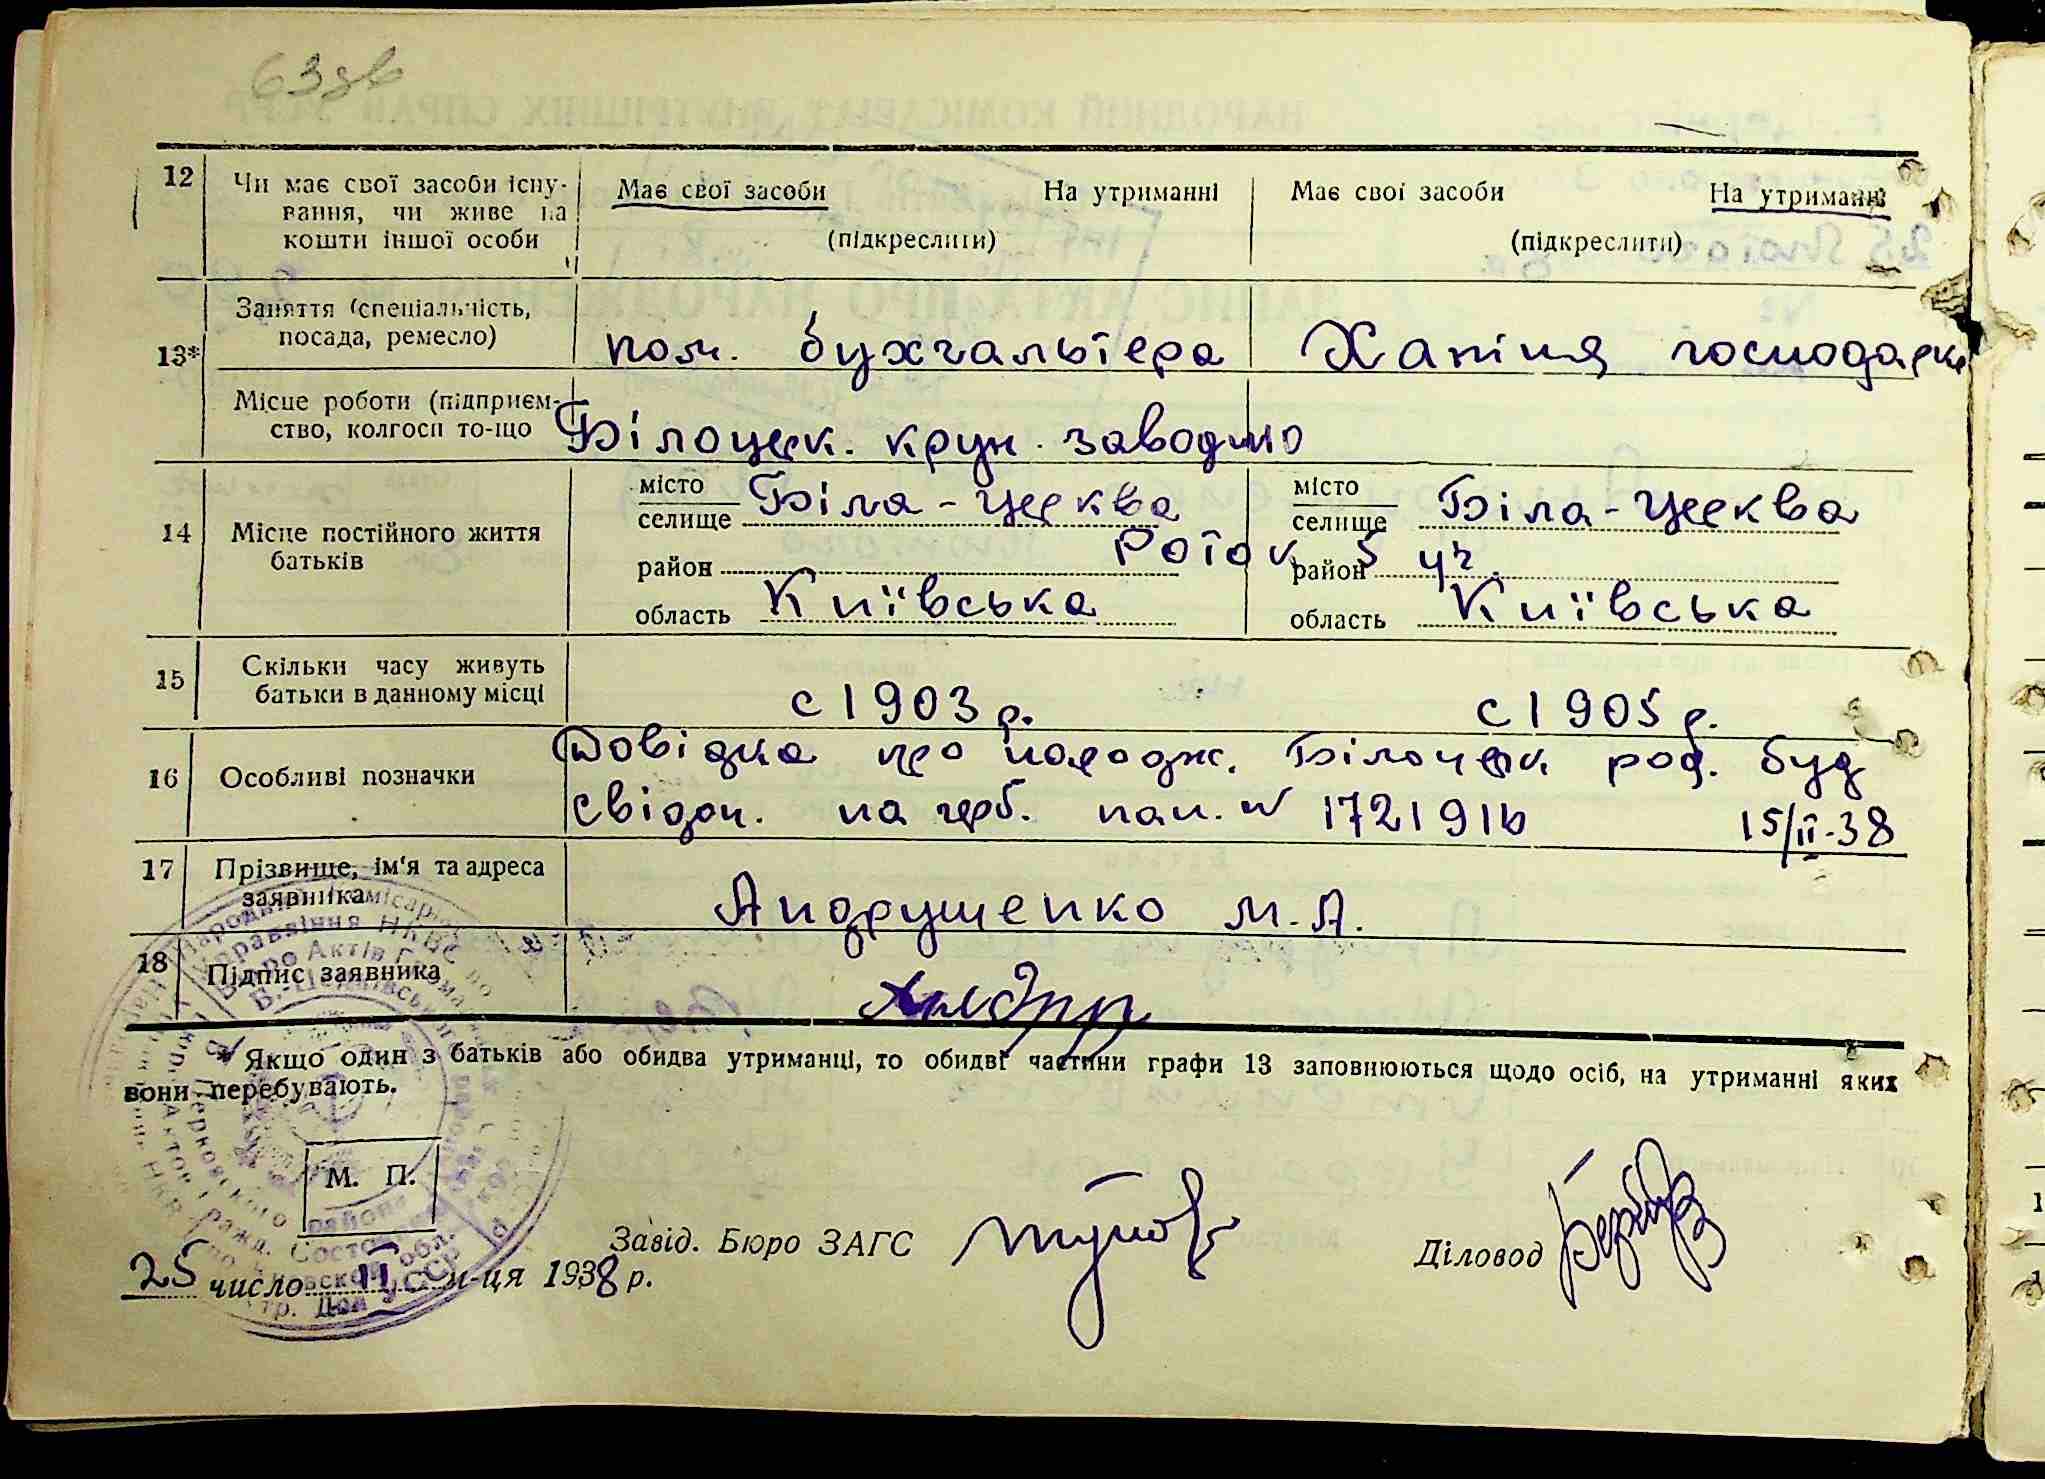 63зв
12 Чи має свої засоби існу-
вання, чи живе на
кошти іншої особи
Має свої засоби На утриманні
(підкреслити)
Має свої засоби На утриманні
(підкреслити)
13* Заняття (спеціальність,
посада, ремесло)
пом. бухгальтера Хатня господарка
Місце роботи (підприєм-
ство, колгосп то-що
Білоцерк. крун. заводмо
14 Місце постійного життя
батьків
місто
селище Біла-Церква
район Роток 5 уч.
область Київська
місто
селище Біла-Церква
район
область Київська
15 Скільки часу живуть
батьки в данному місці
с 1903 р. с 1905 р.
16 Особливі позначки
Довідка про народж. Білоцерк. род. буд
свідоц. на герб. пап. № 172191ь 15/II-38
17 Прізвище, ім'я та адреса
заявника
Андрущенко М. А.
18 Підпис заявника
* Якщо один з батьків або обидва утриманці, то обидві частини графи 13 заповнюються щодо осіб, на утриманні яких
вони перебувають.
М. П.
25 число II м-ця 1938 р.
Завід. Бюро ЗАГС
Діловод